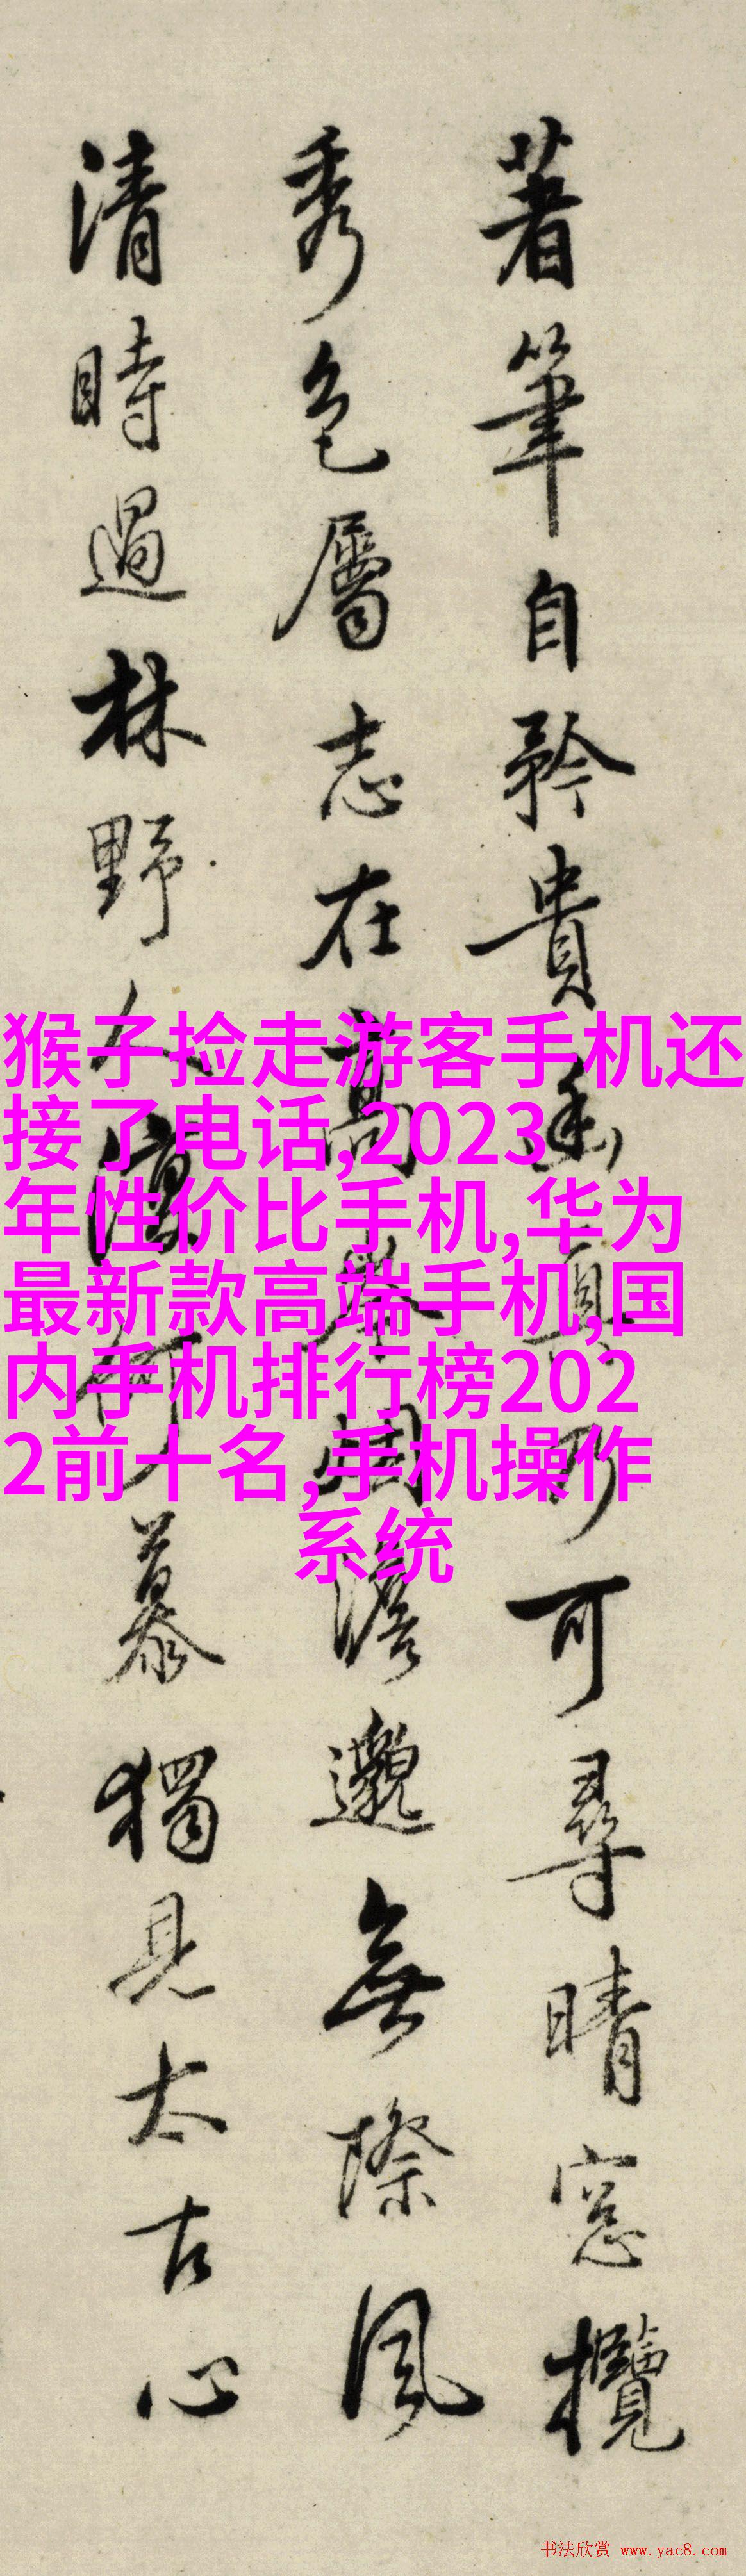 著筆自矜貴幽真乃可尋晴窓攬
秀色屬志在高岑烟澹邈無際風
清時過林野人何慕獨見太古心
猴子捡走游客手机还
接了电话,2023
年性价比手机,华为
最新款高端手机,国
内手机排行榜202
2前十名,手机操作
系统
书法欣赏 www.yac8.com